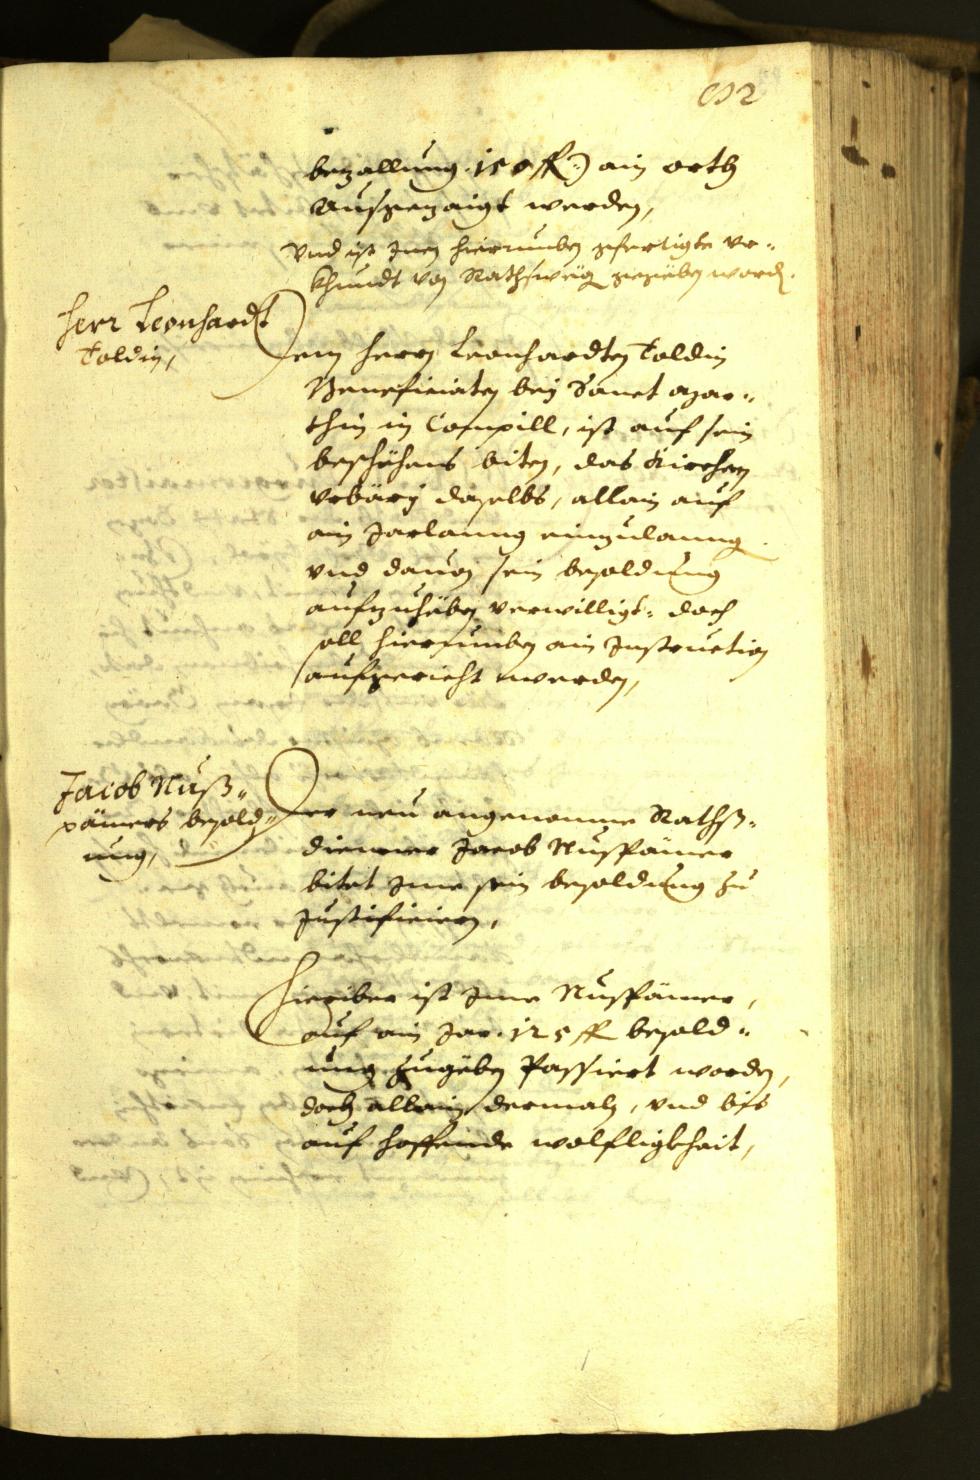 bezallung. 150 fl:) ain orth
Ausgezaigt werden,
vnd ist Inen hierumben gfertigte vr-
khundt von Rathswëg gegëben word.
Herr Leonhardt
Toldin,
Dem Herrn Leonhardten Toldin
Beneficiaten bej Sanct
thin in Campill, ist auf sein
beschëhens biten, das Kirchen
vrbärj daselbs, allain auf
ain Jarlanng einzulanng
vnd dauon sein besoldung
aufzuhëben verwilligt. doch
soll hierumben ain Instruction
aufgericht werden,
Jacob Nuß-
pämers besold-
ung,
Der neu angenomne Rathß-
diener Jacob Nuspämer
bitet Ime sein besoldung zu
Justificiern,
Hierüber ist Ime Nuspämer,
auf ain Jar. 125 fl besold-
ung zugëben Passiert worden,
doch allain dermaln, vnd bis
auf hoffende wolfligkhait,